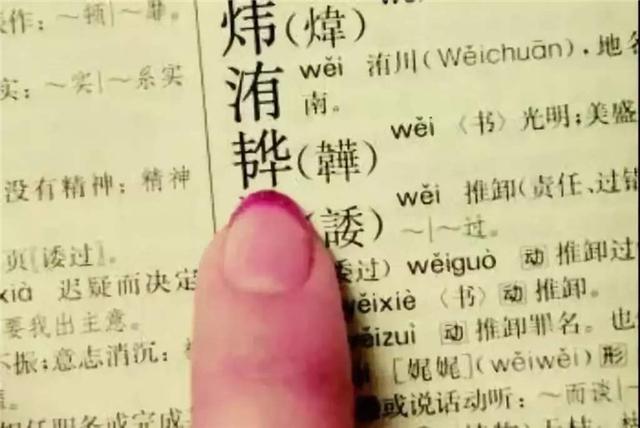 作：～顿|～靡。
实：～实|～系实
没有精神；精神
页〖诿过〗。
xià 迟疑而决定
要我出主意。
不振；意志消沉：
任职务或完成
炜(煒)
洧 wěi 洧川(Wěichuān)，地名
南。
(韡) wěi 〈书〉光明；美盛
(諉) wěi 推卸(责任、过错
～|～过。
过) wěiguò 动 推卸过
wěixiè 〈书〉动 推卸。
wěizuì 动 推卸罪名。也
[娓娓](wěiwěi) 形
或说话动听：～而谈|～